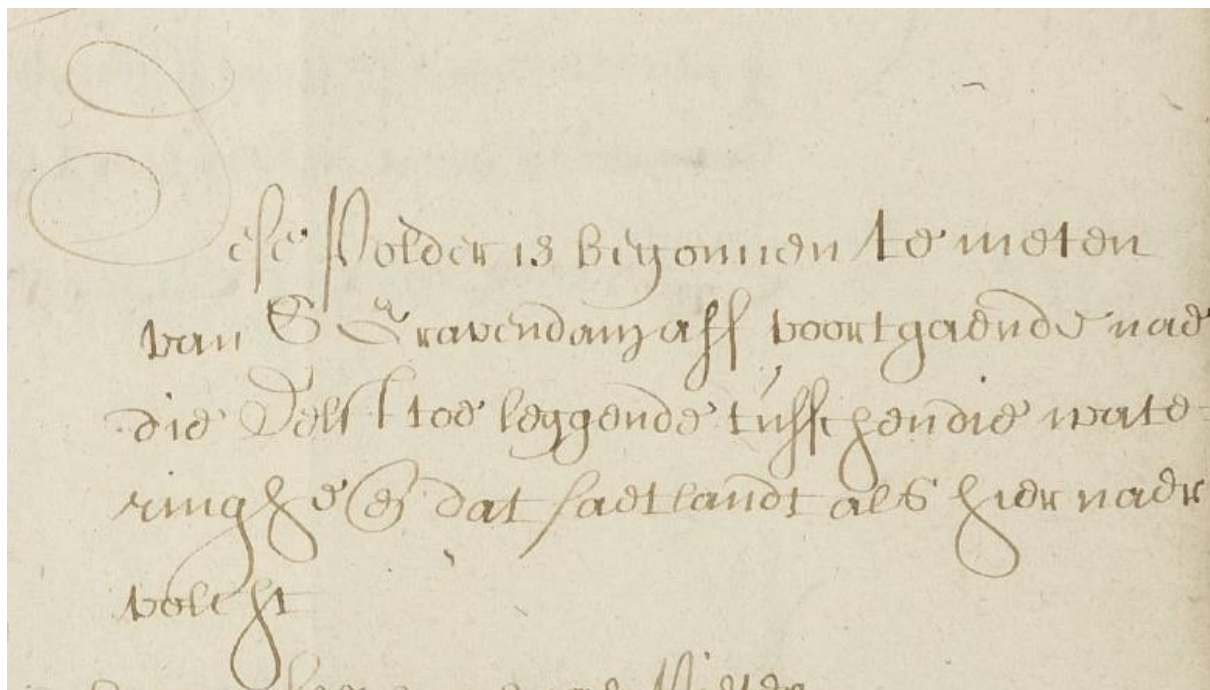 Dese Polder is begonnen te meten
van S Gravendam aff voortgaende nae
die Delft toe leggende tusschen die wate-
ringhe en dat saetlandt als hier naer
volcht
Pieter